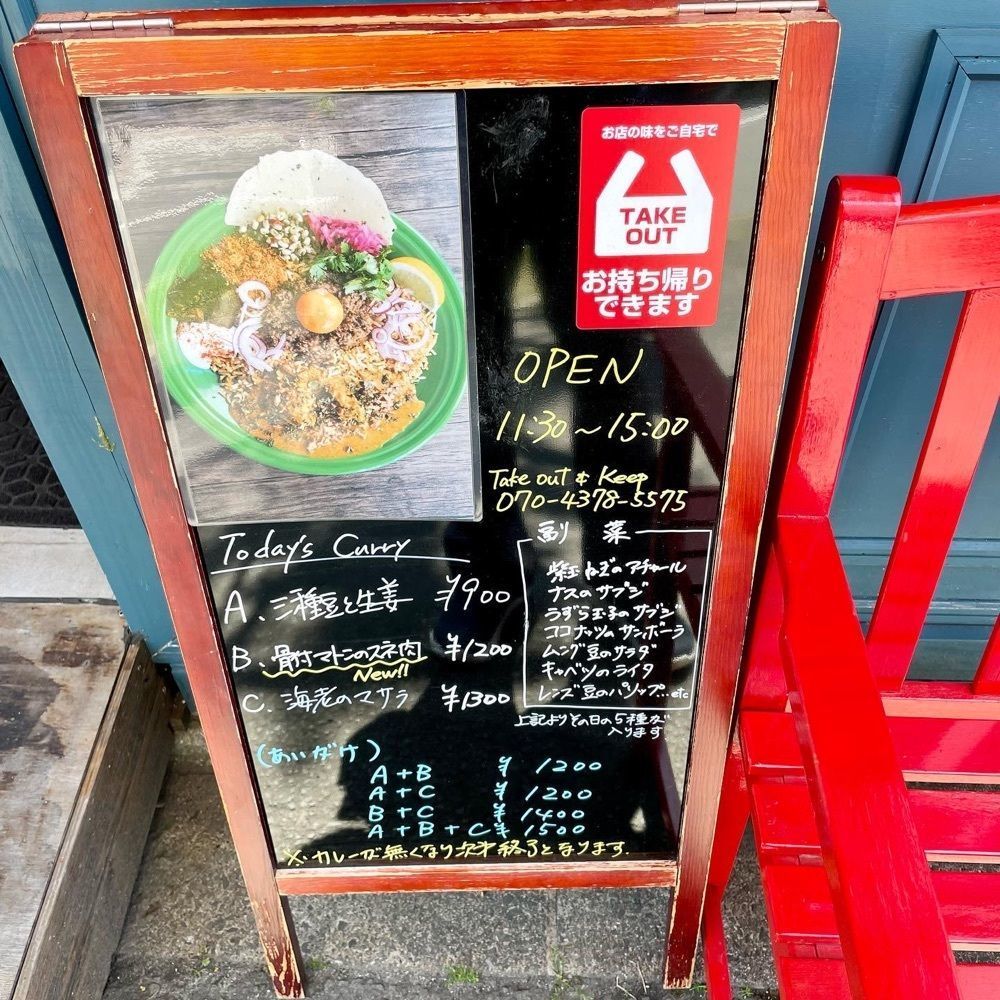 お店の味をご自宅で
TAKE
OUT
お持ち帰り
できます
OPEN
11:30~15:00
Take out & Keep
070-4378-5575
Today's Curry
A. 三種豆と生姜 ¥900
B. 骨付マトンのスネ肉 ¥1200
New!!
C. 海老のマサラ ¥1300
副 菜
紫玉ねぎのアチャール
ナスのサブジ
うずら玉子のサブジ
ココナッツのサンボーラ
ムング豆のサラダ
キャベツのライタ
レンズ豆のパリップ...etc
上記よりその日の5種が
入ります
(あいがけ)
A+B ¥1200
A+C ¥1200
B+C ¥1400
A+B+C ¥1500
※カレーが無くなり次才終了となります.